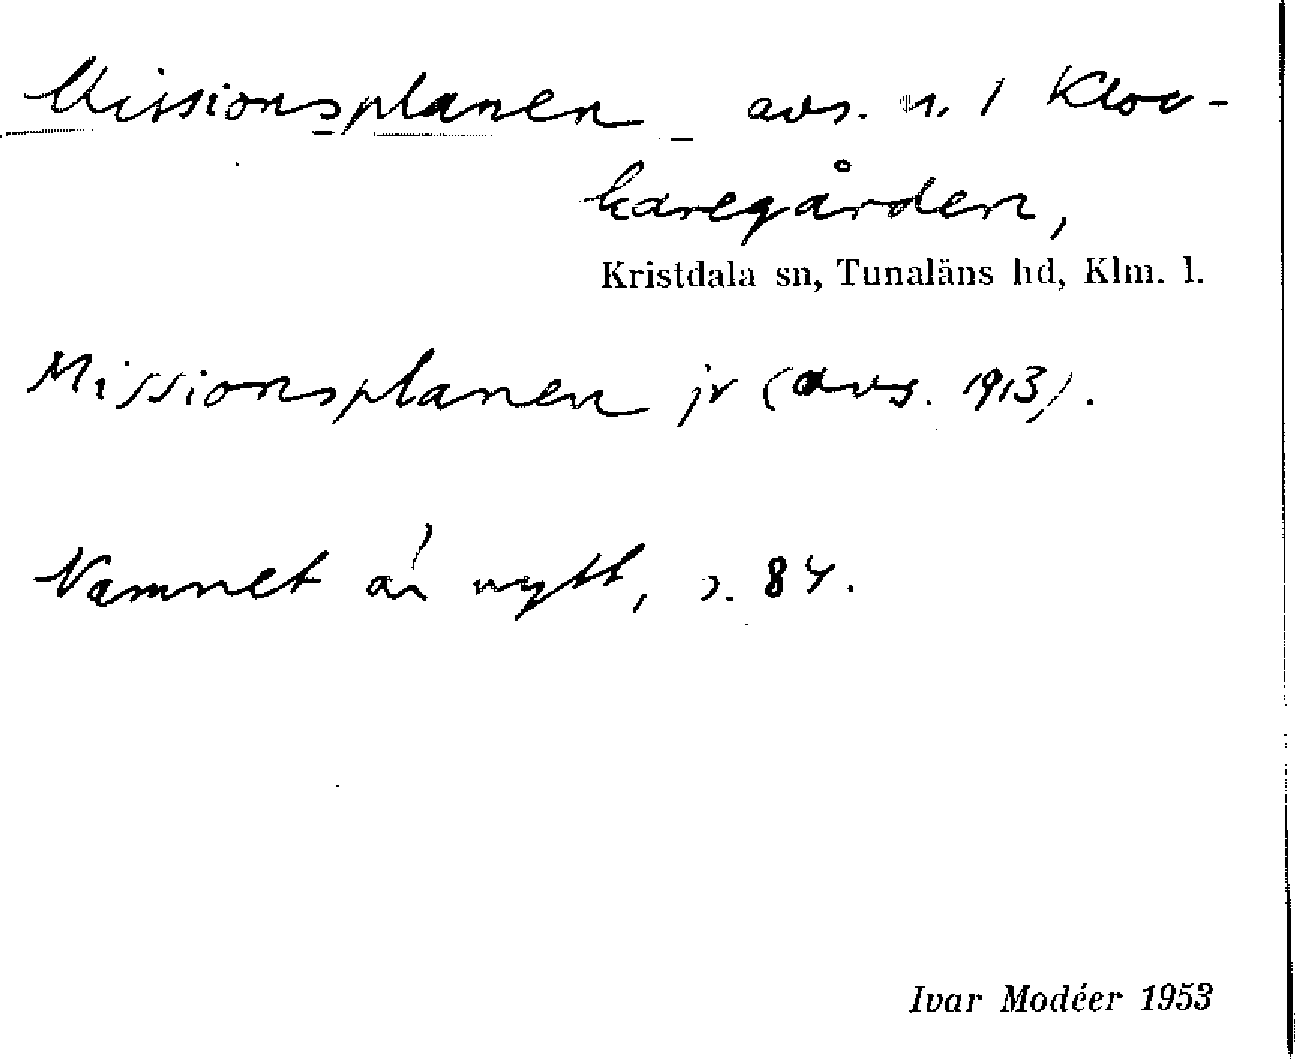 Missionsplanen avs. u. 1 Kloc-
karegården,
Kristdala sn, Tunaläns hd, Klm. l.
Missionsplanen jr (avs. 1913).
Namnet är nytt, s. 84.
Ivar Modéer 1953